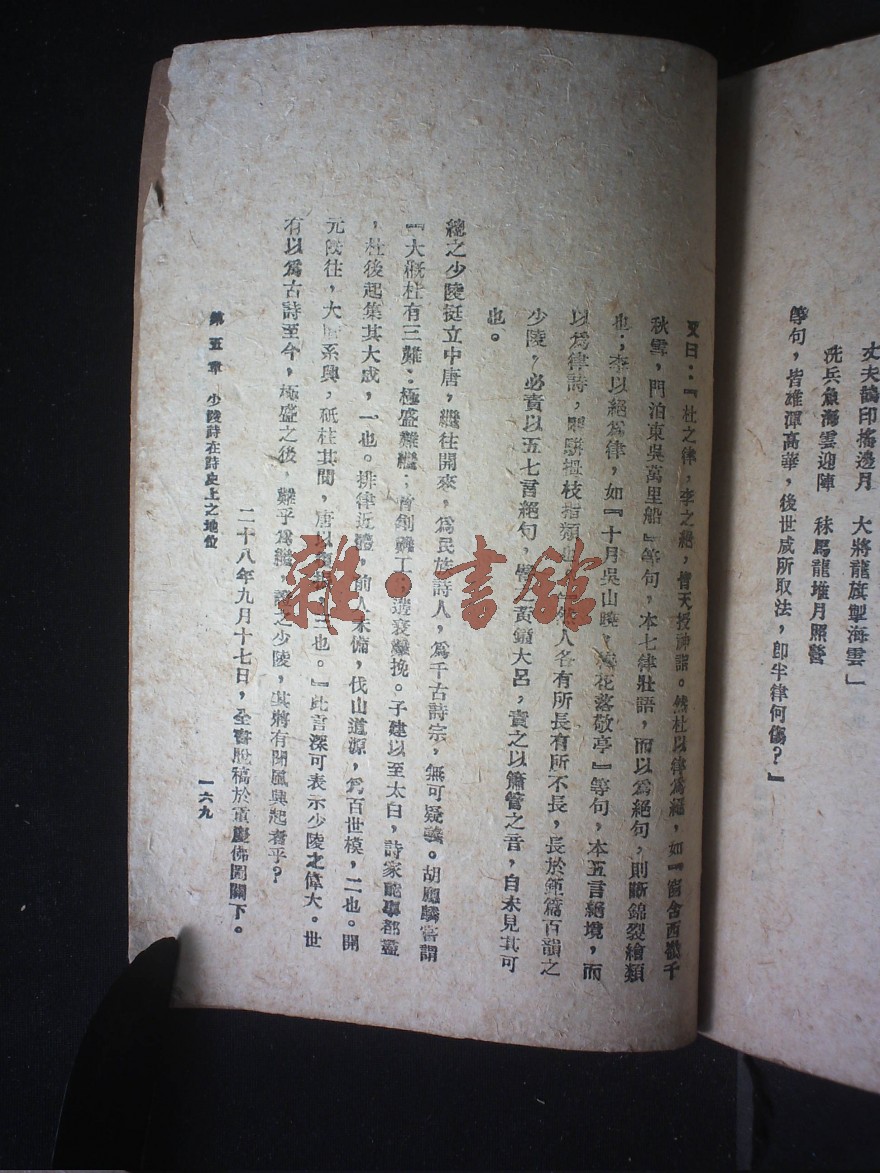 丈夫鵲印搖邊月　大將龍旗掣海雲」
洗兵魚海雲迎陣　秣馬龍堆月照營
等句，皆雄渾高華，後世咸所取法，卽半律何傷？』
又曰：『杜之律，李之絕，皆天授神詣。然杜以律爲絕，如『窗含西嶺千
秋雪，門泊東吳萬里船』等句，本七律壯語，而以爲絕句，則斷錦裂繒類
也；李以絕爲律，如『十月吳山曉，梅花落敬亭』等句，本五言絕境，而
以爲律詩，則駢拇枝指類也。』然人各有所長有所不長，長於鉅篇百韻之
少陵，必責以五七言絕句，黃鐘大呂，責之以簫管之音，自未見其可
也。
總之少陵挺立中唐，繼往開來，爲民族詩人，爲千古詩宗，無可疑義。胡應麟嘗謂
『大概杜有三難：極盛難繼；首創難工；遘衰難挽。子建以至太白，詩家能事都盡
，杜後起集其大成，一也。排律近體，前人未備，伐山道源，爲百世模，二也。開
元旣往，大曆系興，砥柱其間，唐以復振，三也。』此言深可表示少陵之偉大。世
有以爲古詩至今，極盛之後，難乎爲繼，讀之少陵，其將有聞風興起者乎？
二十八年九月十七日，全書脫稿於重慶佛圖關下。
第五章　少陵詩在詩史上之地位
一六九
雜·書館